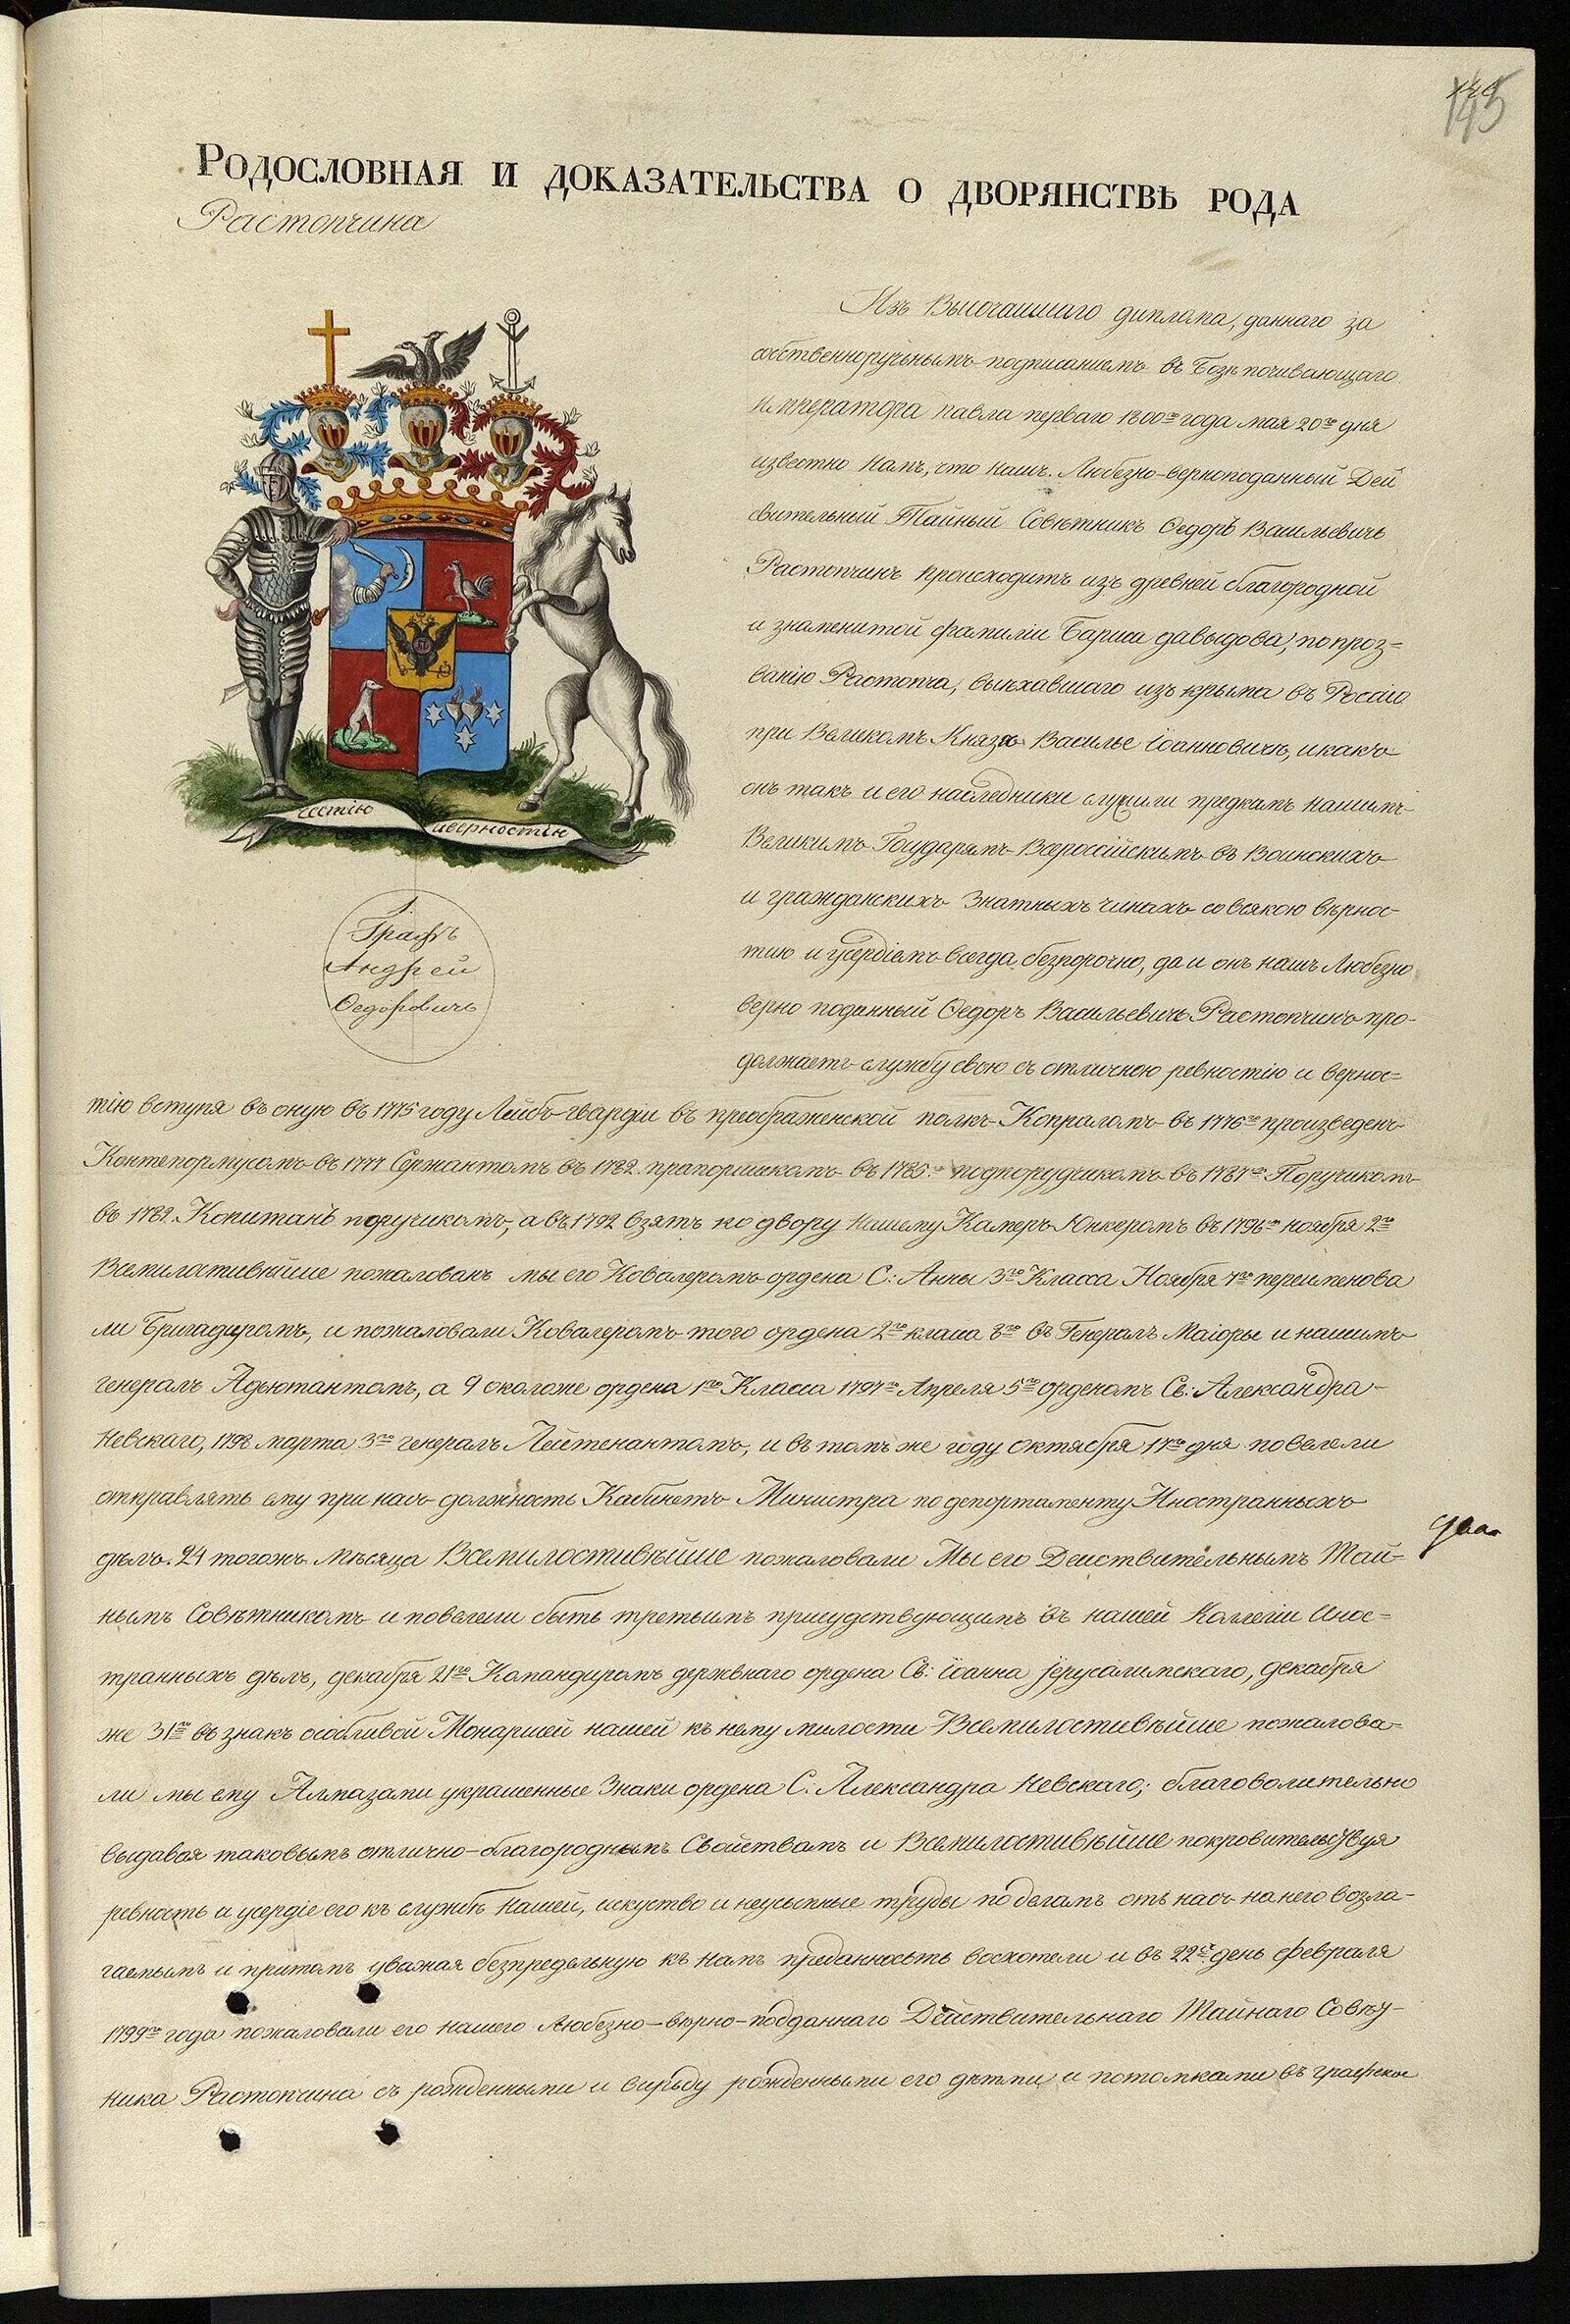 145
Родословная и доказательства о дворянствѣ рода
Растопчина
Изъ Высочайшаго диплома, даннаго за
собственноручнымъ подписаніемъ въ Бозѣ почивающаго
Императора павла перваго 1800го года мая 20го дня
известно намъ, что нашъ Любезно-верноподанный Дей
свительный Тайный Совѣтникъ Ѳедоръ Васильевичь
Растопчинъ происходитъ изъ древней благородной
и знаменитой фамиліи Бориса давыдова, по проз=
ванію Растопча, выѣхавшаго изъ крыма въ Россію
при Великомъ Князѣ Василье Іоанновичѣ, и какъ
онъ такъ и его наследники служили предкамъ нашимъ
Великимъ Государямъ Всеросійскимъ въ Воинскихъ
и гражданскихъ Знатныхъ чинахъ со всякою вѣрнос-
тию и усердіемъ всегда безпорочно, да и онъ нашъ Любезно
верно поданный Ѳедоръ Васильевичь Растопчинъ про-
должаетъ службу свою съ отличною ревностію и вернос=
тію вступя въ оную въ 1775 году Лейбъ гвардіи въ преображенской полкъ Копраломъ въ 1776го произведенъ
Контепормусомъ въ 1777 Сержантомъ въ 1782. прапорщикомъ въ 1785го подпорудчикомъ въ 1787го Поручикомъ
въ 1789. Копитанъ поручикомъ, а въ 1792 взятъ ко двору Нашему Камеръ Юнкеромъ въ 1796го ноября 2го
Всемилостивѣйше пожалованъ мы его Ковалеромъ ордена С: Анны 3го Класса Ноября 7го переименова
ли Бригадиромъ, и пожаловали Ковалеромъ того ордена 2го класа 8го въ Генералъ Маіоры и нашимъ
генералъ Адьютантомъ, а 9 околоже ордена 1го Класса 1797го Апреля 5го орденомъ Св: Александра-
Невскаго, 1798 марта 3го генералъ Лейтенантомъ, и въ томъ же году октября 17го дня повелели
отправлять ему при насъ должность Кабинетъ Министра по депортаменту Иностранныхъ
дѣлъ. 24 тогожъ Мѣсяца Всемилостивѣйше пожаловали Мы его Действительнымъ Тай=
нымъ Совѣтникомъ и повелели быть третьимъ присудствующимъ въ нашей Коллегіи Инос=
транныхъ дѣлъ, декабря 21го Командиромъ державнаго ордена Св: Іоанна Іерусалимскаго, декабря
же 31го въ знакъ особливой Монаршей нашей къ нему милости Всемилостивѣйше пожалова=
ли мы ему Алмазами украшенные Знаки ордена С: Александра Невскаго; благоволительно
выдавая таковымъ отлично-благороднымъ Свойствамъ и Всемилостивѣйше покровительствуя
ревность и усердіе его къ службѣ Нашей, искуство и неусыпные труды по деламъ отъ насъ на него возла-
гаемымъ и притомъ уважая безпредельную къ намъ преданность восхотели и въ 22й день февраля
1799го года пожаловали его нашего Любезно-вѣрно-подданнаго Действительнаго Тайнаго Совѣт-
ника Растопчина съ рожденными и впредь рожденными его дѣтми и потомками въ графское
честію
иверностію
1.
Графъ
Андрей
Ѳедоровичь